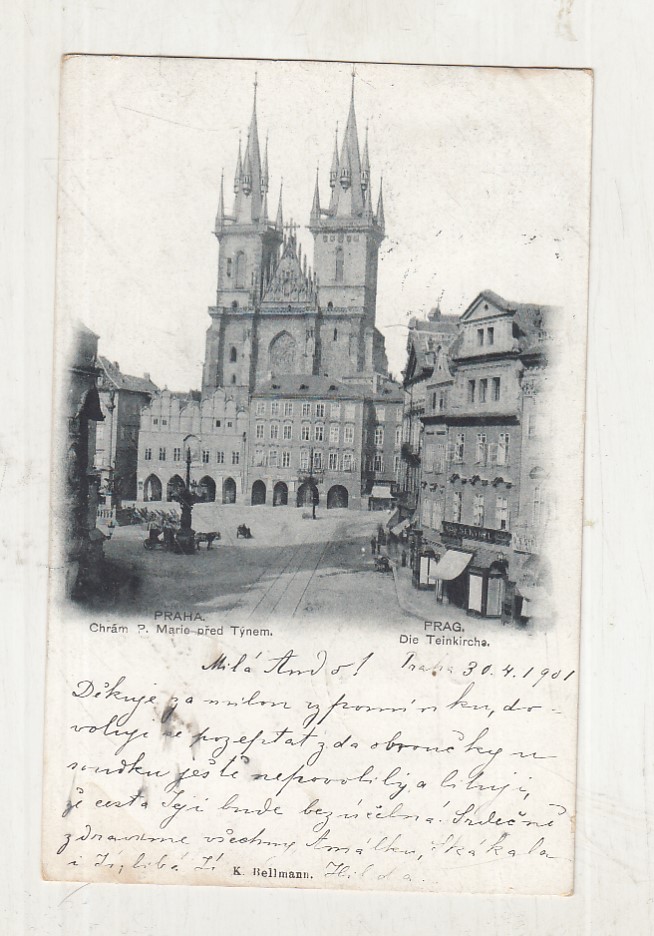 PRAHA.
Chrám P. Marie před Týnem.
PRAG.
Die Teinkirche.
Milá Ando! Praha 30.4.1901
Děkuje za milou vzpomínku, do-
voluji se pozeptat zda obroučky u
soudku ještě nepovolily a lituji,
že cesta Její bude bezúčelná. Srdečně
zdravíme všechny Amálku, Skákala
i Ji, líbá Ji Hilda.
K. Bellmann.